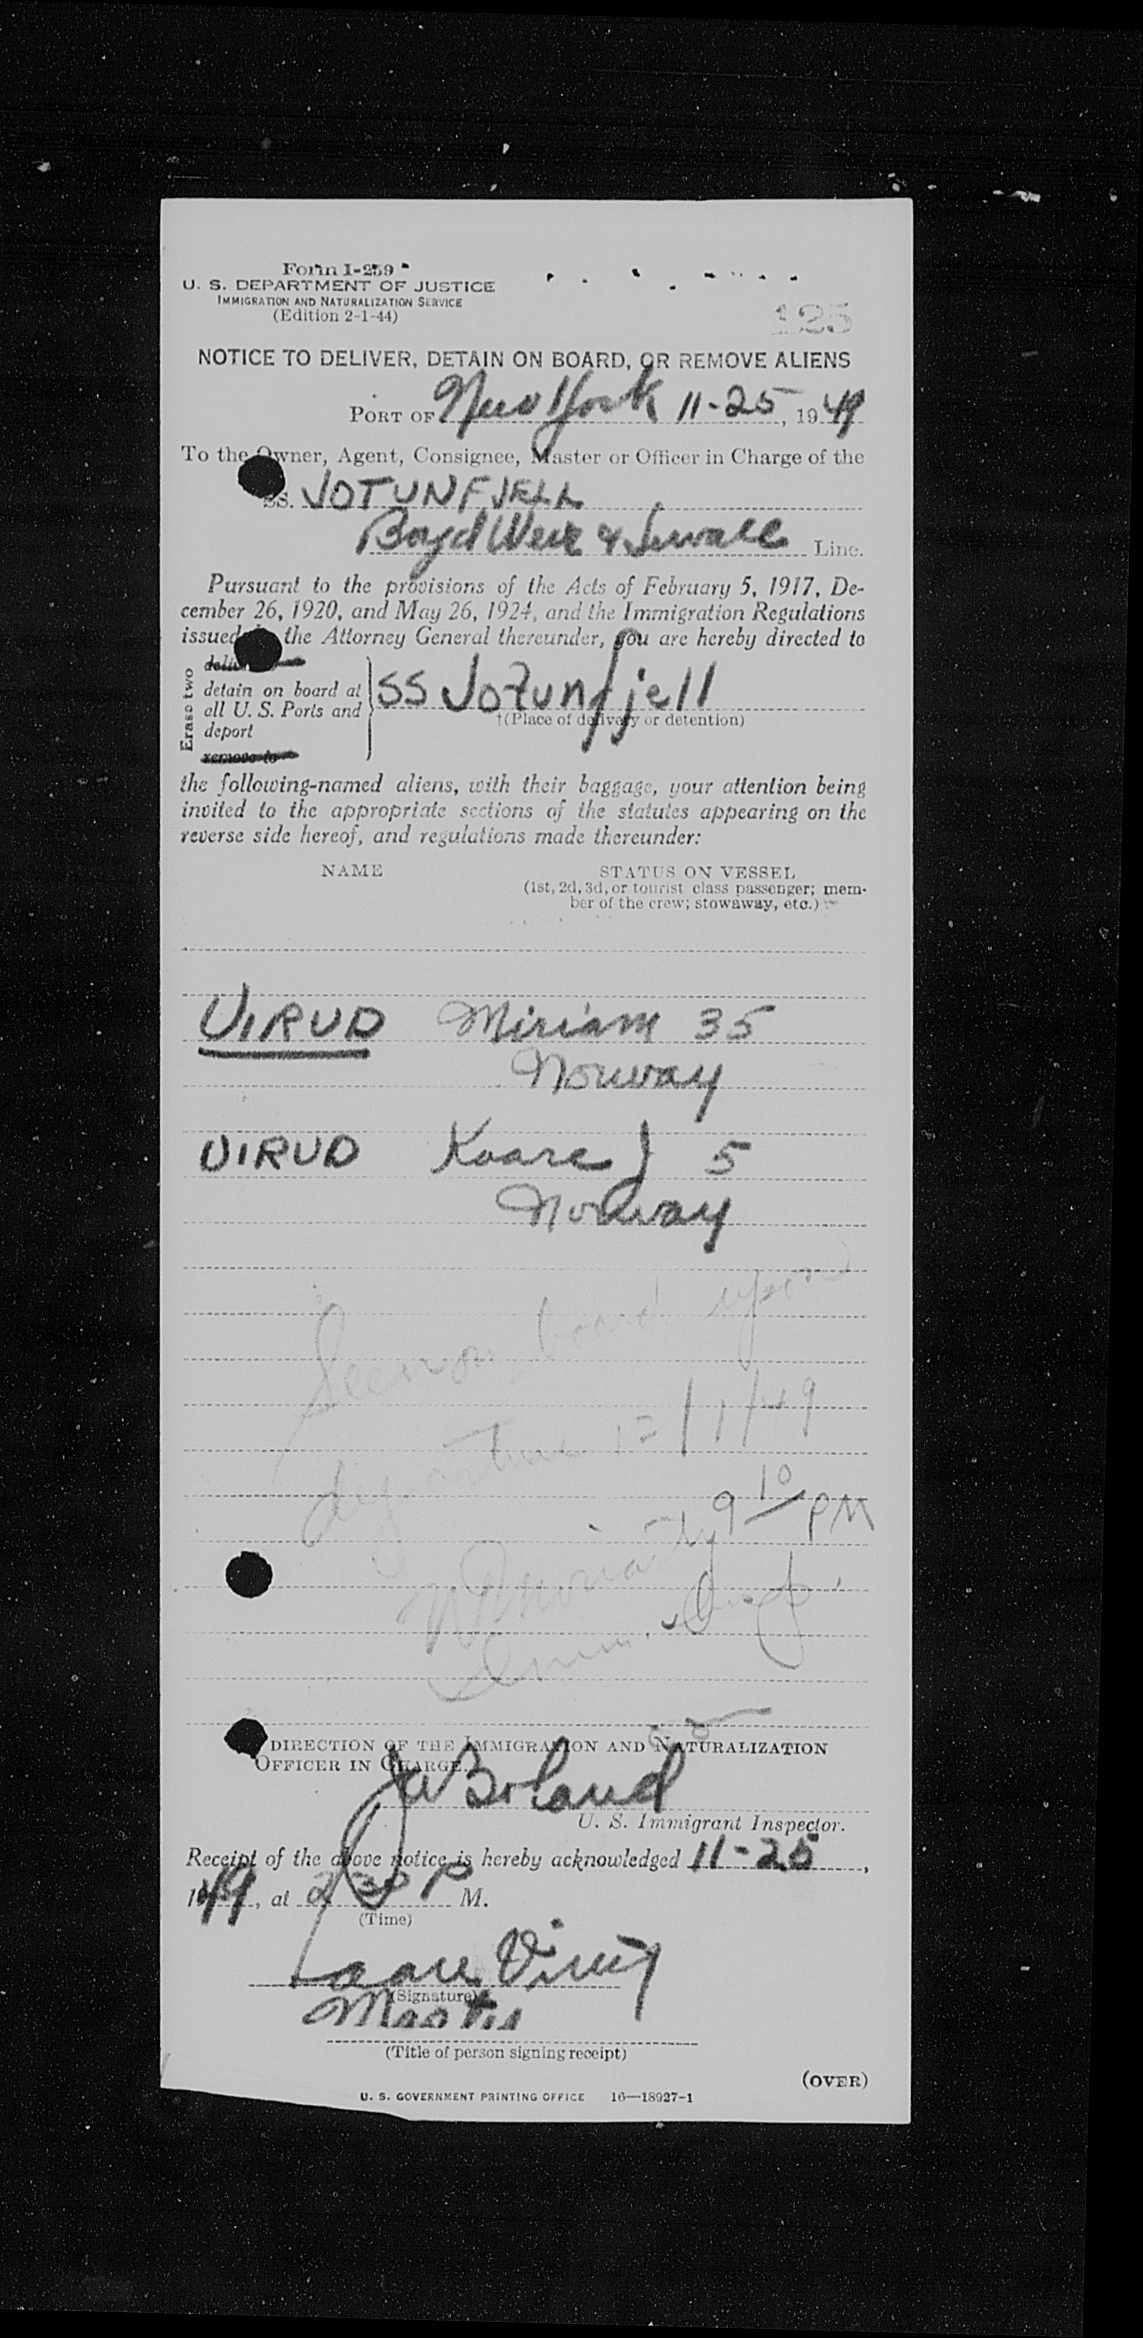 Form I-259
U. S. DEPARTMENT OF JUSTICE
IMMIGRATION AND NATURALIZATION SERVICE
(Edition 2-1-44)
125
NOTICE TO DELIVER, DETAIN ON BOARD, OR REMOVE ALIENS
PORT OF New York 11-25, 1949
To the Owner, Agent, Consignee, Master or Officer in Charge of the
SS. JOTUNFJELL
Boyd Weir & Sewall Line.
Pursuant to the provisions of the Acts of February 5, 1917, De-
cember 26, 1920, and May 26, 1924, and the Immigration Regulations
issued the Attorney General thereunder, you are hereby directed to
Erase two
deliver
detain on board at
all U. S. Ports and
deport
remove to
SS Jotunfjell
†(Place of delivery or detention)
the following-named aliens, with their baggage, your attention being
invited to the appropriate sections of the statutes appearing on the
reverse side hereof, and regulations made thereunder:
NAME STATUS ON VESSEL
(1st, 2d, 3d, or tourist class passenger; mem-
ber of the crew; stowaway, etc.)
VIRUD Miriam 35
Norway
VIRUD Kaare J 5
Norway
Seen on board upon
departure 12/1/49
9 10 PM
Moriarty
Imm. Insp.
DIRECTION OF THE IMMIGRATION AND NATURALIZATION
OFFICER IN CHARGE.
JW Boland
U. S. Immigrant Inspector.
Receipt of the above notice is hereby acknowledged 11-25,
1949, at 2 30 P M.
(Time)
Kaare
(Signature)
Master
(Title of person signing receipt)
(OVER)
U. S. GOVERNMENT PRINTING OFFICE 16—18927-1